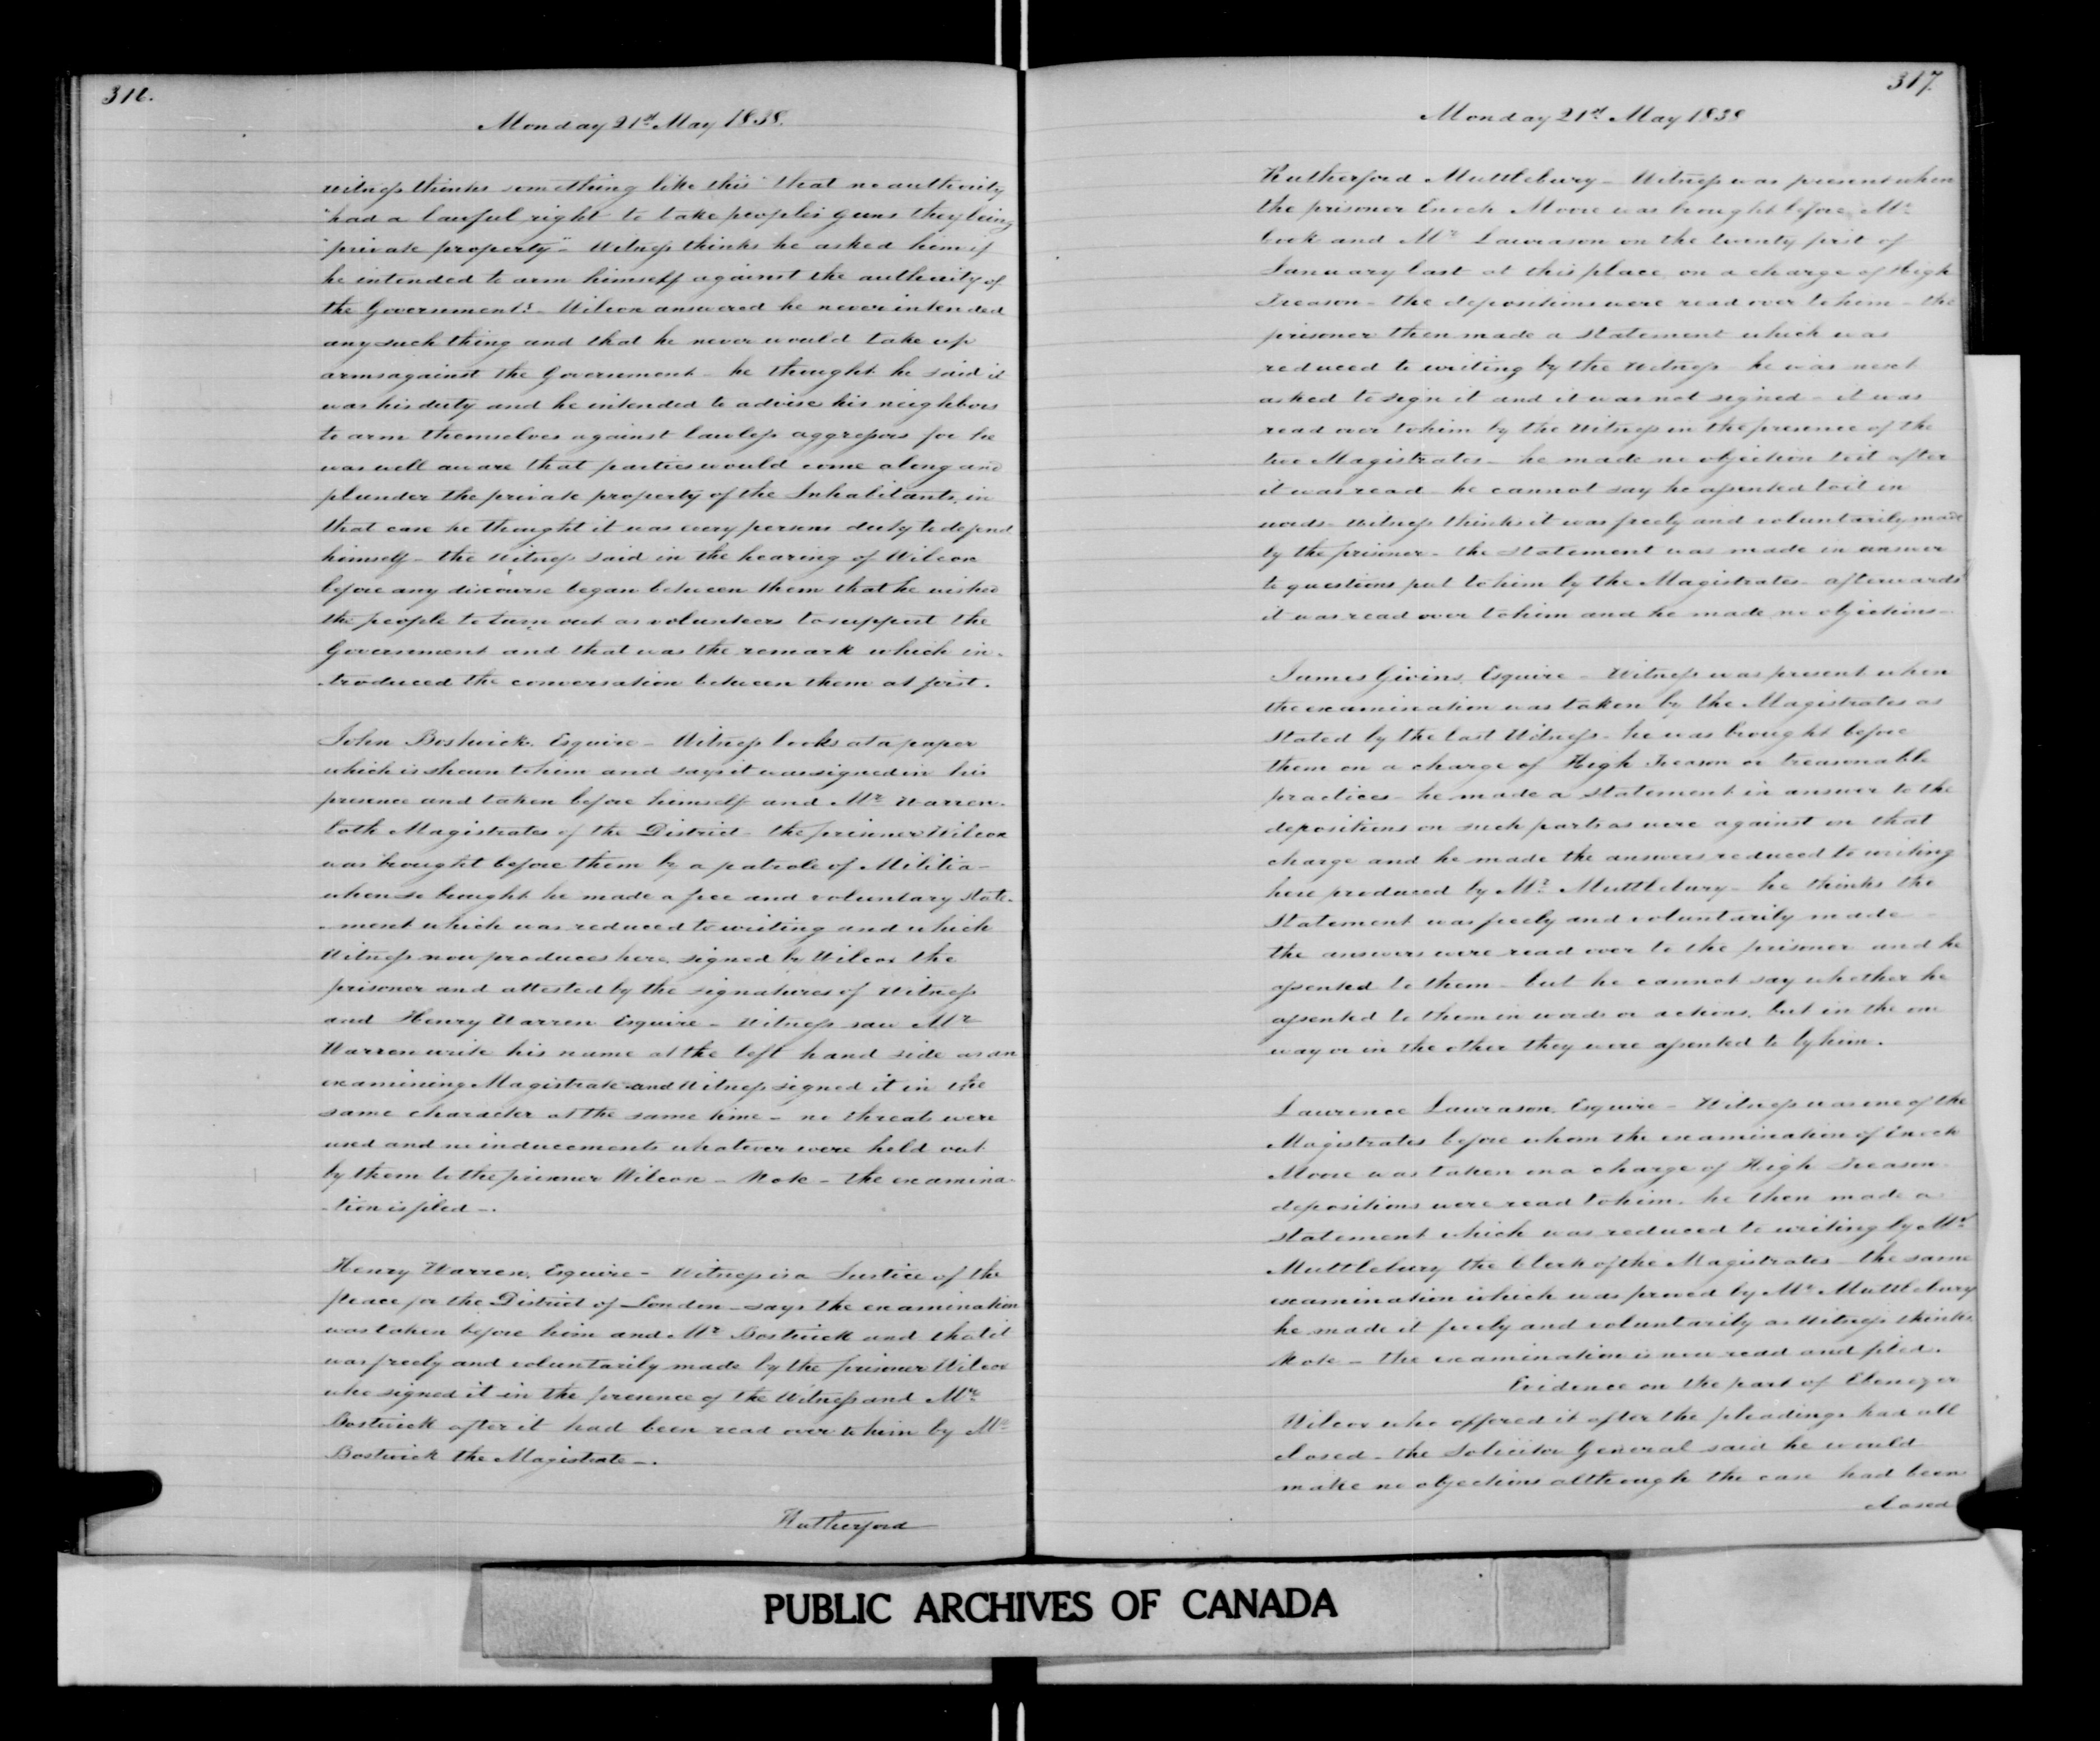 316.
Monday 21st May 1838.
Witness thinks something like this "that no authority
"had a lawful right to take peoples guns they being
"private property" - Witness thinks he asked him if
he intended to arm himself against the authority of
the Government? - Wilcox answered he never intended
any such thing and that he never would take up
arms against the Government - he thought he said it
was his duty and he intended to advise his neighbors
to arm themselves against lawless aggressors for he
was well aware that parties would come along and
plunder the private property of the Inhabitants, in
that case he thought it was every persons duty to defend
himself - the Witness said in the hearing of Wilcox
before any discourse began between them that he wished
the people to turn out as volunteers to support the
Government and that was the remark which in-
-troduced the conversation between them at first.
John Bostwick, Esquire - Witness looks at a paper
which is shewn to him and says it was signed in his
presence and taken before himself and Mr Warren.
both Magistrates of the District - the prisoner Wilcox
was brought before them by a patrole of Militia -
when so brought he made a free and voluntary state-
-ment which was reduced to writing and which
Witness now produces here, signed by Wilcox the
prisoner and attested by the signatures of Witness
and Henry Warren Esquire - Witness saw Mr
Warren write his name at the left hand side as an
examining Magistrate and Witness signed it in the
same character at the same time - no threats were
used and no inducements whatever were held out
by them to the prisoner Wilcox - Note - the examina-
-tion is filed -.
Henry Warren, Esquire - Witness is a Justice of the
peace for the District of London - says the examination
was taken before him and Mr Bostwick and that it
was freely and voluntarily made by the prisoner Wilcox
who signed it in the presence of the Witness and Mr
Bostwick after it had been read over to him by Mr
Bostwick the Magistrate -.
Rutherford
317.
Monday 21st May 1838
Rutherford Muttlebury - Witness was present when
the prisoner Enoch Moore was brought before Mr
Cook and Mr Lawrason on the twenty first of
January last at this place, on a charge of High
Treason - the depositions were read over to him - the
prisoner then made a statement which was
reduced to writing by the Witness - he was next
asked to sign it and it was not signed - it was
read over to him by the Witness in the presence of the
two Magistrates - he made no objection to it after
it was read - he cannot say he assented to it in
words - Witness thinks it was freely and voluntarily made
by the prisoner - the statement was made in answer
to questions put to him by the Magistrates - afterwards
it was read over to him and he made no objections -
James Givins, Esquire - Witness was present when
the examination was taken by the Magistrates as
stated by the last Witness - he was brought before
them on a charge of High Treason or treasonable
practices - he made a statement in answer to the
depositions on such parts as were against on that
charge and he made the answers reduced to writing
here produced by Mr Muttlebury - he thinks the
statement was freely and voluntarily made -
the answers were read over to the prisoner and he
assented to them - but he cannot say whether he
assented to them in words or actions, but in the one
way or in the other they were assented to by him.
Laurence Lawrason, Esquire - Witness was one of the
Magistrates before whom the examination of Enoch
Moore was taken on a charge of High Treason -
depositions were read to him. he then made a
statement which was reduced to writing by Mr
Muttlebury the Clerk of the Magistrates - the same
examination which was proved by Mr Muttlebury
he made it freely and voluntarily as Witness thinks.
Note - the examination is now read and filed.
Evidence on the part of Ebenezer
Wilcox who offered it after the pleadings had all
closed - the Solicitor General said he would
make no objections although the case had been
closed
PUBLIC ARCHIVES OF CANADA